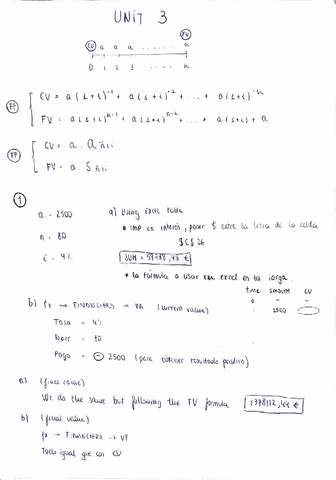 UNIT 3
CV a a a ...... a FV
0 1 2 3 ...... n
CV = a(1+i)⁻¹ + a(1+i)⁻² + ... + a(1+i)⁻ⁿ
FV = a(1+i)ⁿ⁻¹ + a(1+i)ⁿ⁻² + ... + a(1+i) + a
CV = a · a n̄|i
FV = a · S n̄|i
①
a = 2500 a) Using Excel table
n = 80 * IMP en interés, poner $ entre la letra de la celda
$C$26
i = 4%
* la fórmula a usar en excel es la larga
time amount CV
0 - -
1 2500
b) fx → FINANCIERO → VA (current value)
Tasa = 4%
Nper = 80
Pago = - 2500 (para obtener resultado positivo)
a) (final value)
We do the same but following the FV formula
b) (final value)
fx → FINANCIERO → VF
Todo igual que con CV